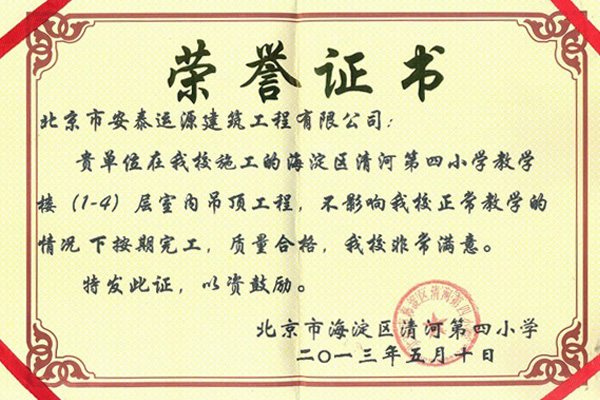 荣誉证书
北京市安泰运源建筑工程有限公司：
贵单位在我校施工的海淀区清河第四小学教学
楼（1-4）层室内吊顶工程，不影响我校正常教学的
情况下按期完工，质量合格，我校非常满意。
特发此证，以资鼓励。
北京市海淀区清河第四小学
二〇一三年五月十日